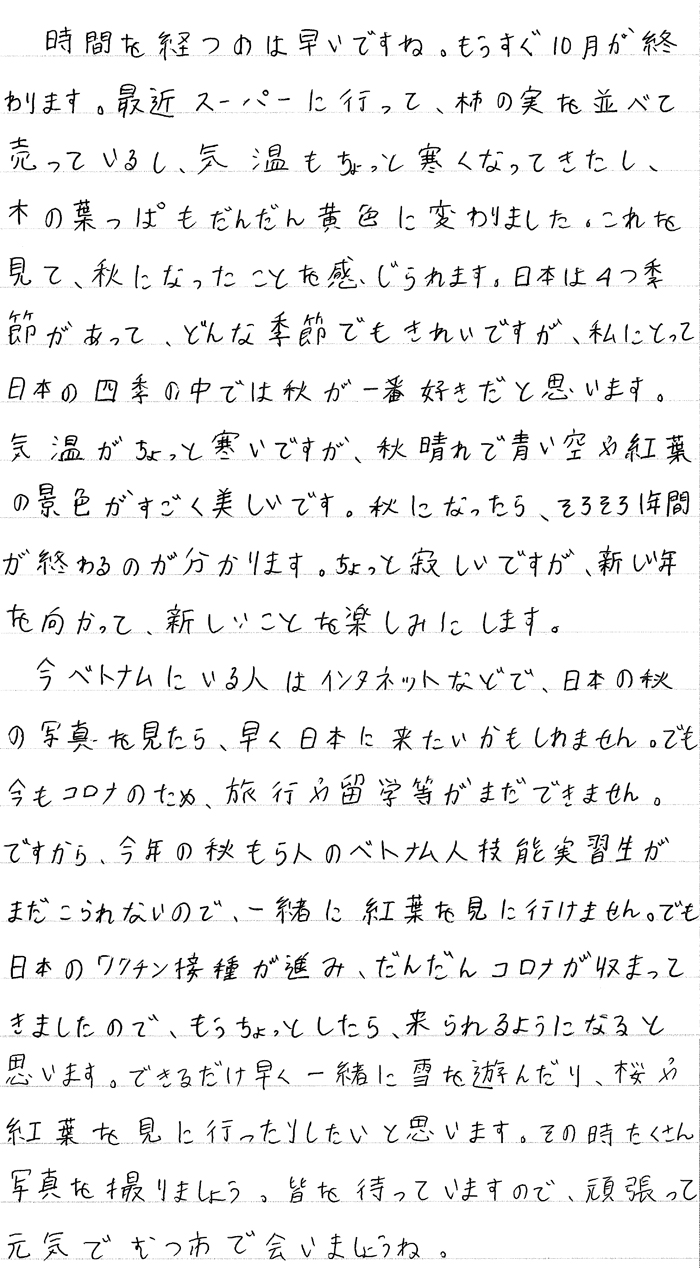 時間を経つのは早いですね。もうすぐ10月が終
わります。最近スーパーに行って、柿の実を並べて
売っているし、気温もちょっと寒くなってきたし、
木の葉っぱもだんだん黄色に変わりました。これを
見て、秋になったことを感じられます。日本は4つ季
節があって、どんな季節でもきれいですが、私にとって
日本の四季の中では秋が一番好きだと思います。
気温がちょっと寒いですが、秋晴れで青い空や紅葉
の景色がすごく美しいです。秋になったら、そろそろ1年間
が終わるのが分かります。ちょっと寂しいですが、新しい年
を向かって、新しいことを楽しみにします。
今ベトナムにいる人はインタネットなどで、日本の秋
の写真を見たら、早く日本に来たいかもしれません。でも
今もコロナのため、旅行や留学等がまだできません。
ですから、今年の秋も5人のベトナム人技能実習生が
まだこられないので、一緒に紅葉を見に行けません。でも
日本のワクチン接種が進み、だんだんコロナが収まって
きましたので、もうちょっとしたら、来られるようになると
思います。できるだけ早く一緒に雪を遊んだり、桜や
紅葉を見に行ったりしたいと思います。その時たくさん
写真を撮りましょう。皆を待っていますので、頑張って
元気でむつ市で会いましょうね。